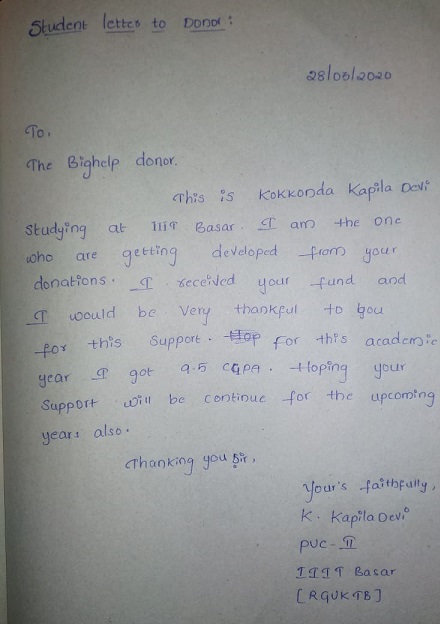 Student letter to Donor:
28/03/2020
To,
The Bighelp donor.
This is Kokkonda Kapila Devi
studying at IIIT Basar. I am the one
who are getting developed from your
donations. I received your fund and
I would be very thankful to you
for this support. Hop For this academic
year I got 9.5 CGPA. Hoping your
support will be continue for the upcoming
years also.
Thanking you Sir,
Your's faithfully,
K. Kapila Devi
PUC-II
IIIT Basar
[RGUKTB]